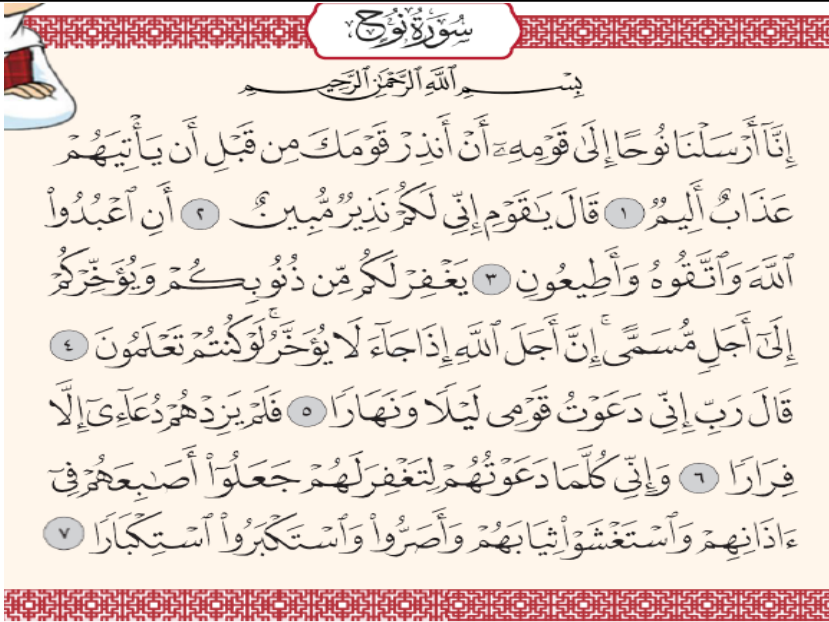 سُورَةُ نُوحٍ
بِسْمِ ٱللَّهِ ٱلرَّحْمَٰنِ ٱلرَّحِيمِ
إِنَّآ أَرْسَلْنَا نُوحًا إِلَىٰ قَوْمِهِۦٓ أَنْ أَنذِرْ قَوْمَكَ مِن قَبْلِ أَن يَأْتِيَهُمْ
عَذَابٌ أَلِيمٌ ١ قَالَ يَٰقَوْمِ إِنِّى لَكُمْ نَذِيرٌ مُّبِينٌ ٢ أَنِ ٱعْبُدُوا۟
ٱللَّهَ وَٱتَّقُوهُ وَأَطِيعُونِ ٣ يَغْفِرْ لَكُم مِّن ذُنُوبِكُمْ وَيُؤَخِّرْكُمْ
إِلَىٰٓ أَجَلٍ مُّسَمًّى ۚ إِنَّ أَجَلَ ٱللَّهِ إِذَا جَآءَ لَا يُؤَخَّرُ ۖ لَوْ كُنتُمْ تَعْلَمُونَ ٤
قَالَ رَبِّ إِنِّى دَعَوْتُ قَوْمِى لَيْلًا وَنَهَارًا ٥ فَلَمْ يَزِدْهُمْ دُعَآءِىٓ إِلَّا
فِرَارًا ٦ وَإِنِّى كُلَّمَا دَعَوْتُهُمْ لِتَغْفِرَ لَهُمْ جَعَلُوٓا۟ أَصَٰبِعَهُمْ فِىٓ
ءَاذَانِهِمْ وَٱسْتَغْشَوْا۟ ثِيَابَهُمْ وَأَصَرُّوا۟ وَٱسْتَكْبَرُوا۟ ٱسْتِكْبَارًا ٧